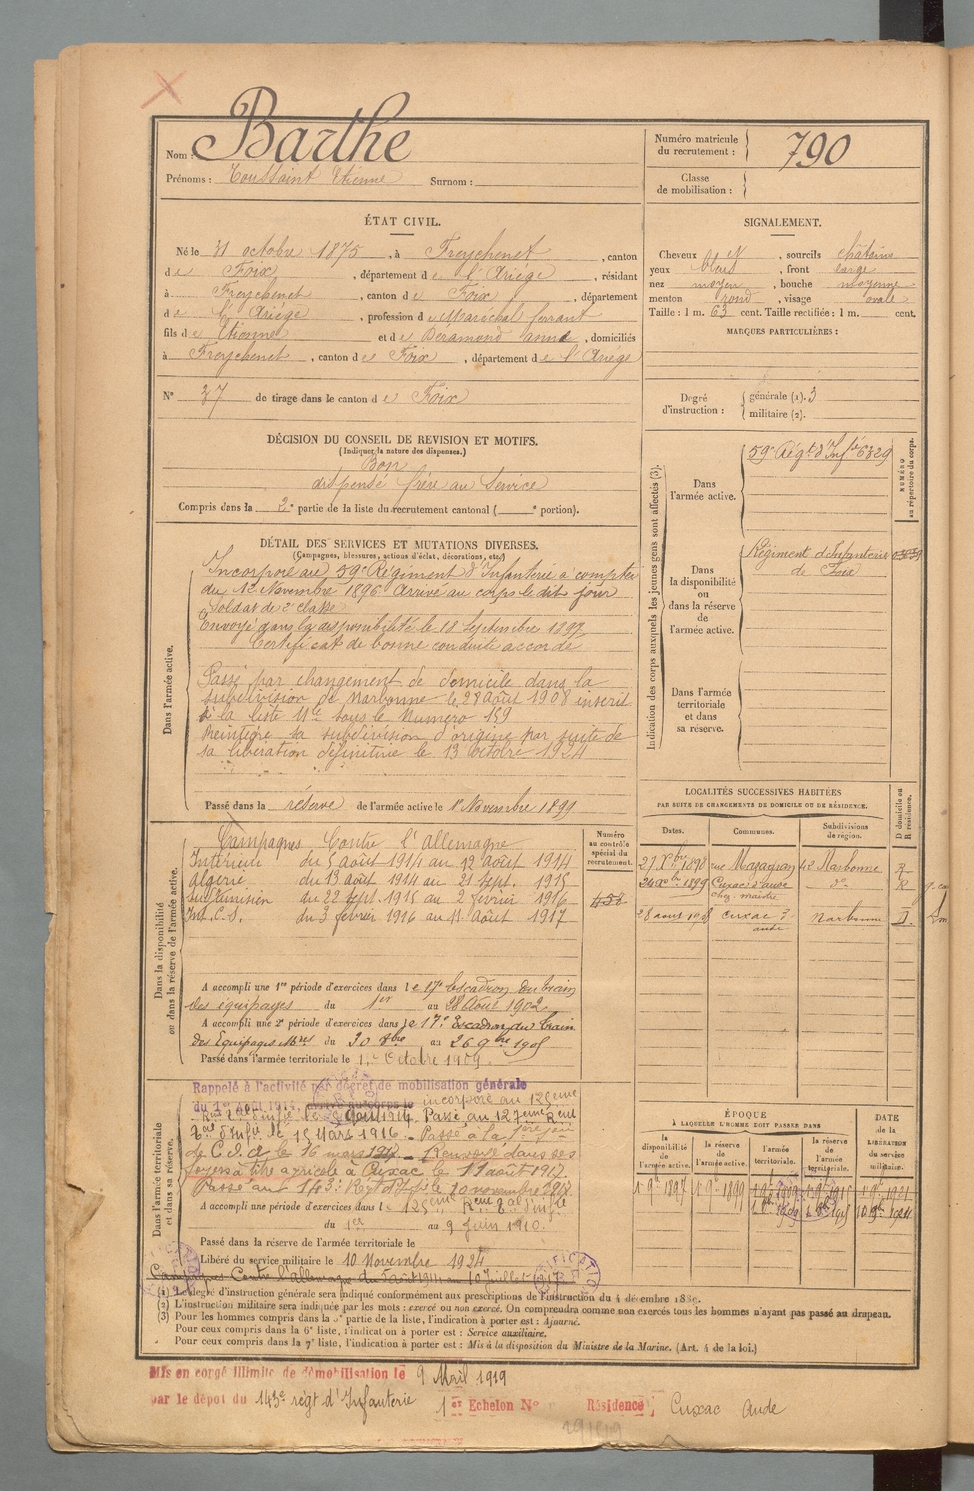 Nom : Barthe
Prénoms : Toussaint Etienne Surnom :
Numéro matricule du recrutement : 790
Classe de mobilisation :
ÉTAT CIVIL.
Né le 31 octobre 1875, à Freychenet, canton
de Foix, département de l'Ariège, résidant
à Freychenet, canton de Foix, département
de l'Ariège, profession de Maréchal ferrant
fils de Etienne et de Deramond Anne, domiciliés
à Freychenet, canton de Foix, département de l'Ariège
N° 37 de tirage dans le canton de Foix
SIGNALEMENT.
Cheveux et, sourcils châtains
yeux bleus, front large
nez moyen, bouche moyenne
menton rond, visage ovale
Taille : 1 m. 63 cent. Taille rectifiée : 1 m. cent.
MARQUES PARTICULIÈRES :
Degré d'instruction :
générale (1). 3
militaire (2).
DÉCISION DU CONSEIL DE REVISION ET MOTIFS.
(Indiquer la nature des dispenses.)
Bon
dispensé frère au service
Compris dans la 2e partie de la liste du recrutement cantonal ( e portion).
Indication des corps auxquels les jeunes gens sont affectés (3).
NUMÉRO au répertoire du corps.
Dans l'armée active.
59e Régt d'Infie 6329
Dans la disponibilité ou dans la réserve de l'armée active.
Régiment d'Infanterie
de Foix
Dans l'armée territoriale et dans sa réserve.
DÉTAIL DES SERVICES ET MUTATIONS DIVERSES.
(Campagnes, blessures, actions d'éclat, décorations, etc.)
Dans l'armée active.
Incorporé au 59e Régiment d'Infanterie à compter
du 1er Novembre 1896 Arrivé au corps le dit jour
Soldat de 2e classe
Envoyé dans la disponibilité le 18 Septembre 1897
Certificat de bonne conduite accordé
Passé par changement de domicile dans la
subdivision de Narbonne le 28 Août 1908 inscrit
à la liste Mle sous le Numéro 159
Réintégré sa subdivision d'origine par suite de
sa libération définitive le 13 Octobre 1924
Passé dans la réserve de l'armée active le 1er Novembre 1899
LOCALITÉS SUCCESSIVES HABITÉES
PAR SUITE DE CHANGEMENTS DE DOMICILE OU DE RÉSIDENCE.
D domicile ou R résidence.
Dates. Communes. Subdivisions de région.
27 Xbre 1898 rue Mazagran 42 Narbonne R
24 Xbre 1899 Cuxac d'aude do R
chez
28 aout 1908 Cuxac d'aude Narbonne D
Dans la disponibilité ou dans la réserve de l'armée active.
Numéro au contrôle spécial du recrutement.
Campagnes Contre l'Allemagne
Intérieur du 5 août 1914 au 12 août 1914
Algérie du 13 août 1914 au 21 sept. 1915
Sud tunisien du 22 sept. 1915 au 2 février 1916
Int. C.S. du 3 février 1916 au 11 Août 1917
A accompli une 1re période d'exercices dans le 17e Escadron du train
des équipages du 1er au 28 Août 1902
A accompli une 2e période d'exercices dans le 17e Escadron du train
des Equipages Mres du 30 8bre au 26 9bre 1905
Passé dans l'armée territoriale le 1er Octobre 1909
Dans l'armée territoriale et dans sa réserve.
Rappelé à l'activité par décret de mobilisation générale
du 1er Août 1914, arrivé au corps le incorporé au 125ème
Passé au 127ème Rgint
Tal d'Infie le 15 Mars 1916 - Passé à la
le 16 mars - Renvoyé dans ses
foyers à titre agricole à Cuxac le 11 août 1917.
Passé au 143e Régt d'Infie le 10 novembre 1917
A accompli une période d'exercices dans le 125ème Rgint Tal d'Infie
du 1er au 9 Juin 1910.
Passé dans la réserve de l'armée territoriale le
Libéré du service militaire le 10 Novembre 1924
Campagnes Contre l'allemagne du 5 août 1914 au 10 Juillet
ÉPOQUE
À LAQUELLE L'HOMME DOIT PASSER DANS
la disponibilité de l'armée active.
la réserve de l'armée active.
l'armée territoriale.
la réserve de l'armée territoriale.
DATE de la LIBÉRATION du service militaire.
1 9bre 1897 1 9bre 1899 1 9bre 1909 1 9bre 1915 1 9bre 1921
(1) Le degré d'instruction générale sera indiqué conformément aux prescriptions de l'instruction du 4 décembre 1889.
(2) L'instruction militaire sera indiquée par les mots : exercé ou non exercé. On comprendra comme non exercés tous les hommes n'ayant pas passé au drapeau.
(3) Pour les hommes compris dans la 5e partie de la liste, l'indication à porter est : Ajourné.
Pour ceux compris dans la 6e liste, l'indication à porter est : Service auxiliaire.
Pour ceux compris dans la 7e liste, l'indication à porter est : Mis à la disposition du Ministre de la Marine. (Art. 4 de la loi.)
Mis en congé illimité de démobilisation le 9 Avril 1919
par le dépot du 143e régt d'Infanterie 1er Echelon No Résidence Cuxac Aude